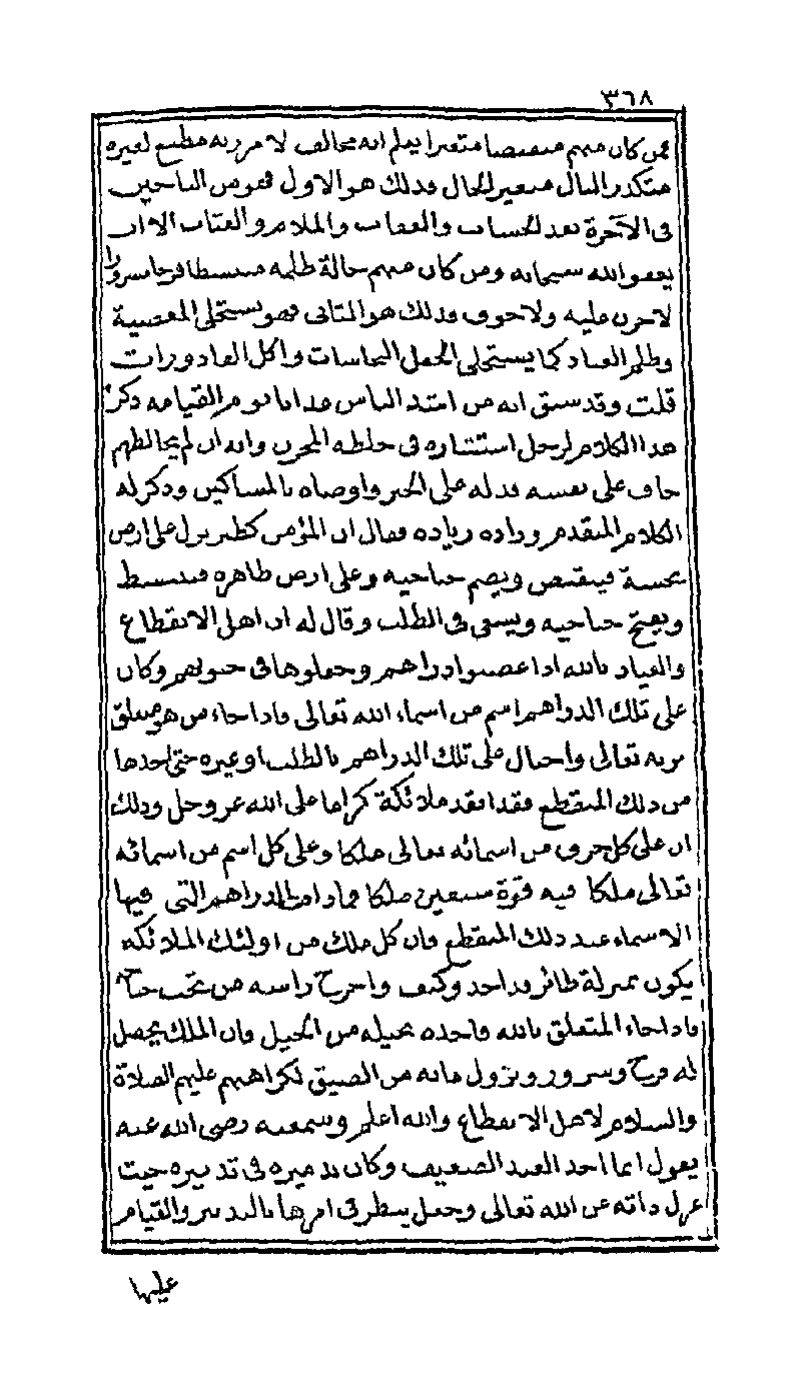 ٣٦٨
فمن كان منهم منقبضا متغيرا يعلم انه مخالف لامر ربه مطيع لغيره
متكدر البال متغير الحال فذلك هو الاول فهو من الناجين
فى الآخرة بعد الحساب والعقاب والملام والعتاب الا ان
يعفو الله سبحانه ومن كان منهم حالة ظلمه منبسطا فرحا مسرورا
لا حزن عليه ولا خوف فذلك هو الثانى فهو يستحلى المعصية
وظلم العباد كما يستحلى الجعل النجاسات واكل القاذورات
قلت وقد سبق انه من اشد الناس عذابا يوم القيامه ذكر
هذا الكلام لرجل استشاره فى خلطه المخزن وانه ان لم يخالطهم
خاف على نفسه فدله على الخير واوصاه بالمساكين وذكر له
الكلام المتقدم وزاده زياده فقال ان المؤمن كطير نزل على ارض
نجسة فينقبض ويضم جناحيه وعلى ارض طاهره فينبسط
ويفتح جناحيه ويسعى فى الطلب وقال له ان اهل الانقطاع
والعياذ بالله اذا غصبوا دراهم وجعلوها فى جيوبهم وكان
على تلك الدراهم اسم من اسماء الله تعالى فاذا جاء من هو متعلق
بربه تعالى واحتال على تلك الدراهم بالطلب او غيره حتى اخذها
من ذلك المنقطع فقد انقذ ملائكة كراما على الله عز وجل وذلك
ان على كل حرف من اسمائه تعالى ملكا وعلى كل اسم من اسمائه
تعالى ملكا فيه قوة سبعين ملكا فمادامت الدراهم التى فيها
الاسماء عند ذلك المنقطع فان كل ملك من اولئك الملائكه
يكون بمنزلة طائر قد اخذ وكتف واخرج راسه من تحت جناح
فاذا جاء المتعلق بالله فاخذه بحيله من الحيل فان الملك يحصل
له فرح وسرور ويزول مابه من الضيق لكراهتهم عليهم الصلاة
والسلام لاهل الانقطاع والله اعلم وسمعته رضى الله عنه
يقول انما اخذ العبد الضعيف وكان تدميره فى تدبيره حيث
عزل ذاته عن الله تعالى وجعل ينظر فى امرها بالتدبير والقيام
عليها